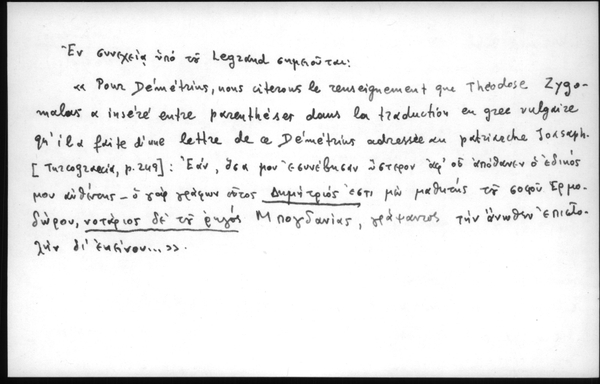 Ἐν συνεχείᾳ ὑπὸ τοῦ Legrand σημειοῦται:
« Pour Démétrius, nous citerons le renseignement que Théodose Zygo-
malas a inséré entre parenthèses dans la traduction en grec vulgaire
qu'il a faite d'une lettre de ce Démétrius adressée au patriarche Joasaph.
[Turcograecia, p.249]: Ἐάν, ὅσα μου ἐσυνέβησαν ὕστερον ἀφ' οὗ ἀπόθανεν ὁ ἐδικός
μου αὐθέντης – ὁ γὰρ γράφων οὗτος Δημήτριός ἐστι μὲν μαθητὴς τοῦ σοφοῦ Ἑρμο-
δώρου, νοτάριος δὲ τοῦ ῥηγός Μπογδανίας, γράψαντος τὴν ἄνωθεν ἐπιστο-
λὴν δι' ἐκείνου...».